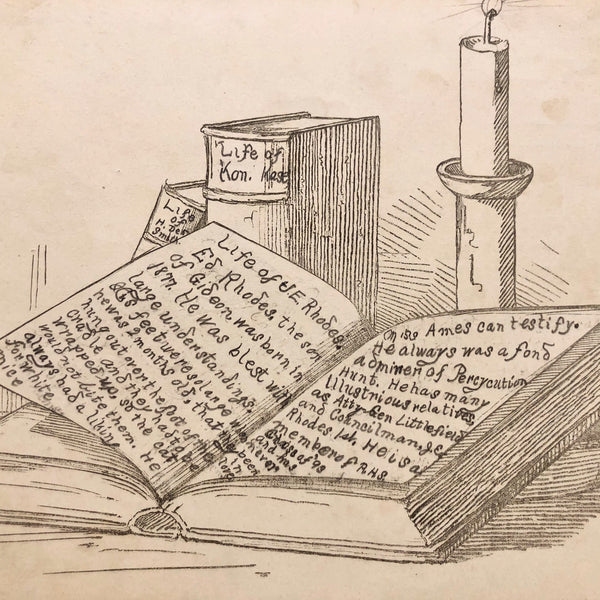 Life of
Kon. Kase
Life
of
H. Des
Life of U E Rhodes.
Ed Rhodes, the son
of Gideon was born in
187?. He was blest with
large understandings.
His feet were so large when
he was 2 months old that they
hung out over the foot of his
cradle and they had to be
wrapped up so the cat
would not bite them. He
always had a liking
for White
mice
been
and has
Miss Ames can testify.
He always was a fond
admirer of Percycution
Hunt. He has many
Illustrious relatives
as Atty. Gen Littlefield
and Councilman, Geo
Rhodes, Ish. He is a
member of R.H.S.
Class of '98